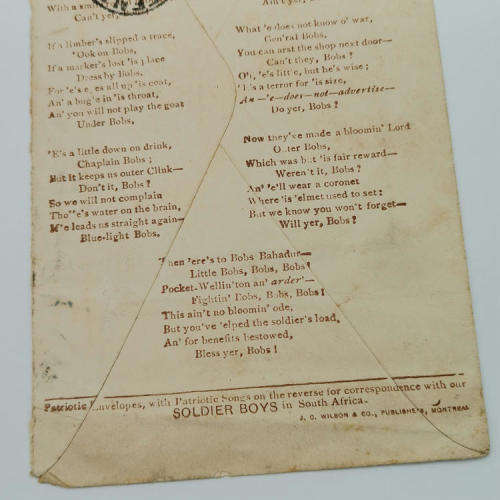 With a
Can't yer,
If a limber's slipped a trace,
'Ook on Bobs.
If a marker's lost 'is place
Dress by Bobs.
For 'e's eyes all up 'is coat,
An' a bugle in 'is throat,
An' you will not play the goat
Under Bobs.
'E's a little down on drink,
Chaplain Bobs;
But it keeps us outer Clink—
Don't it, Bobs?
So we will not complain
Tho' 'e's water on the brain,
If 'e leads us straight again—
Blue-light Bobs.
What 'e does not know o' war,
Gen'ral Bobs,
You can arst the shop next door—
Can't they, Bobs?
Oh, 'e's little, but he's wise;
'E's a terror for 'is size,
An—'e—does—not—advertise—
Do yer, Bobs?
Now they've made a bloomin' Lord
Outer Bobs,
Which was but 'is fair reward—
Weren't it, Bobs?
An' 'e'll wear a coronet
Where 'is 'elmet used to set:
But we know you won't forget—
Will yer, Bobs?
Then 'ere's to Bobs Bahadur—
Little Bobs, Bobs, Bobs!
Pocket-Wellin'ton an' arder'—
Fightin' Bobs, Bobs, Bobs!
This ain't no bloomin' ode,
But you've 'elped the soldier's load,
An' for benefits bestowed,
Bless yer, Bobs!
Patriotic Envelopes, with Patriotic Songs on the reverse for correspondence with our
SOLDIER BOYS in South Africa.
J. C. WILSON & CO., PUBLISHERS, MONTREAL